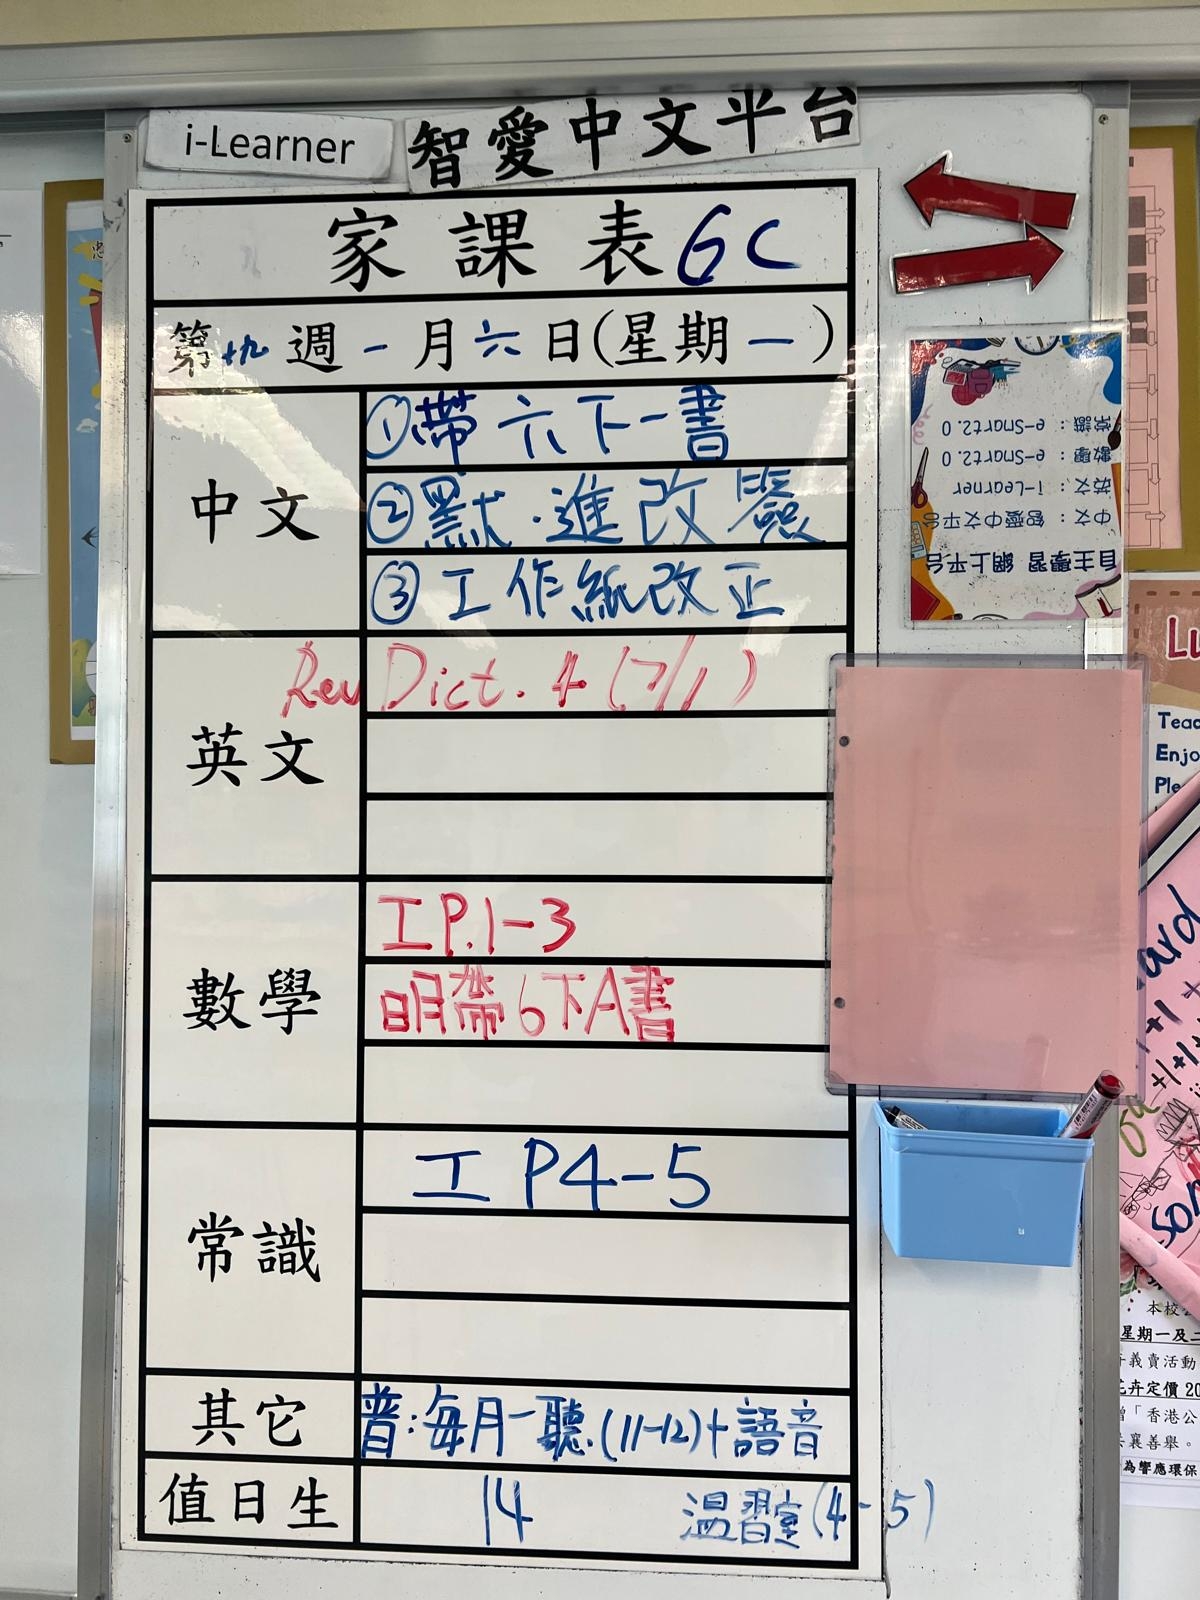 i-Learner
智愛中文平台
家課表 6C
第十九週一月六日(星期一)
中文
①帶六下一書
②默．進改簽
③工作紙改正
英文
Rev Dict. 4 (7/1)
數學
工P.1-3
明帶6下A書
常識
工 P4-5
其它
普：每月一聽(11-12)+語音
值日生
14
溫習室(4-5)
自主學習 網上平台
中文：智愛中文平台
英文：i-Learner
數學：e-Smart2.0
常識：e-Smart2.0
Enjo
本校
星期一及二
義賣活動
花卉定價 20
「香港公
襄善舉。
為響應環保